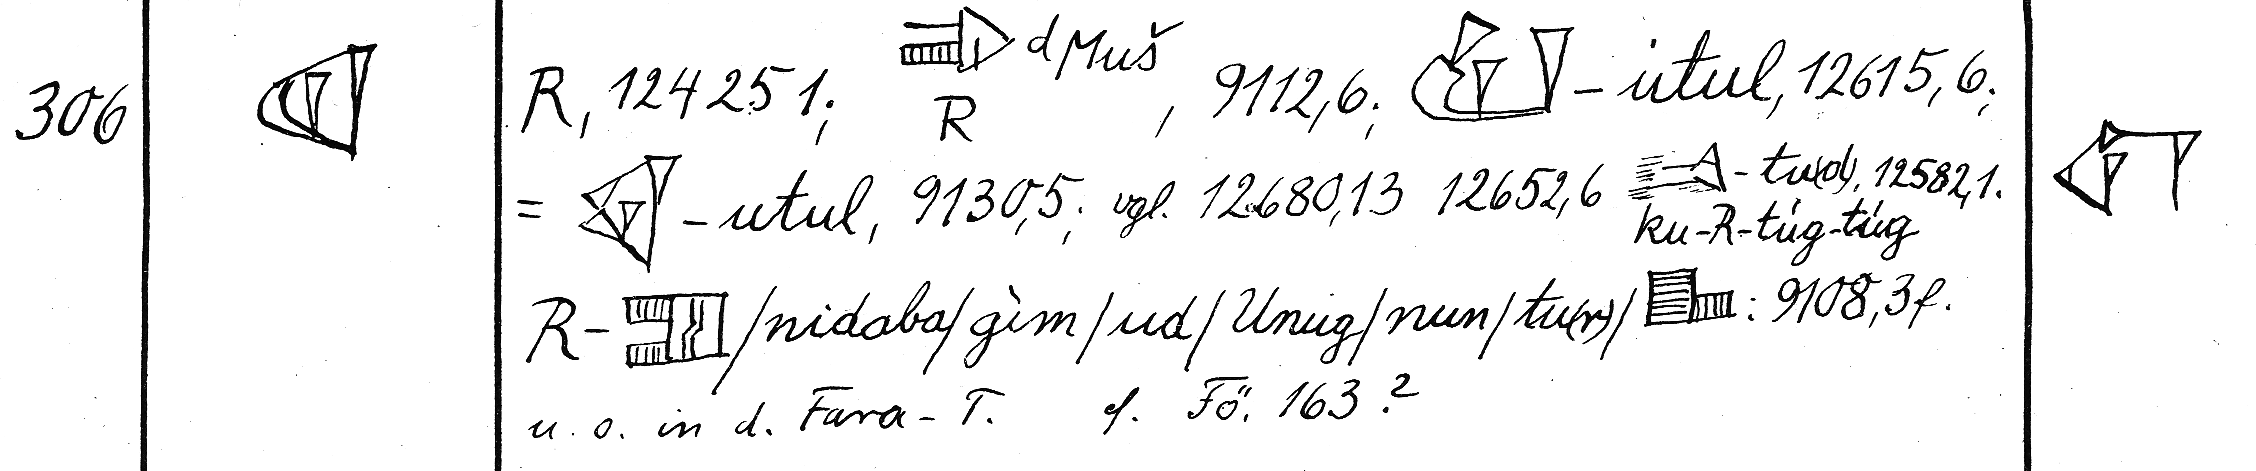 306
R, 12425 1; dMuš
R , 9112,6; -utul, 12615,6;
= -utul, 9130,5; vgl. 12680,13 12652,6 -tu(d), 12582,1.
ku-R-túg-túg
R- /nidaba/gìm/ud/Unug/nun/tu(r)/ : 9108,3f.
u. o. in d. Fara-T. cf. Fö. 163.?